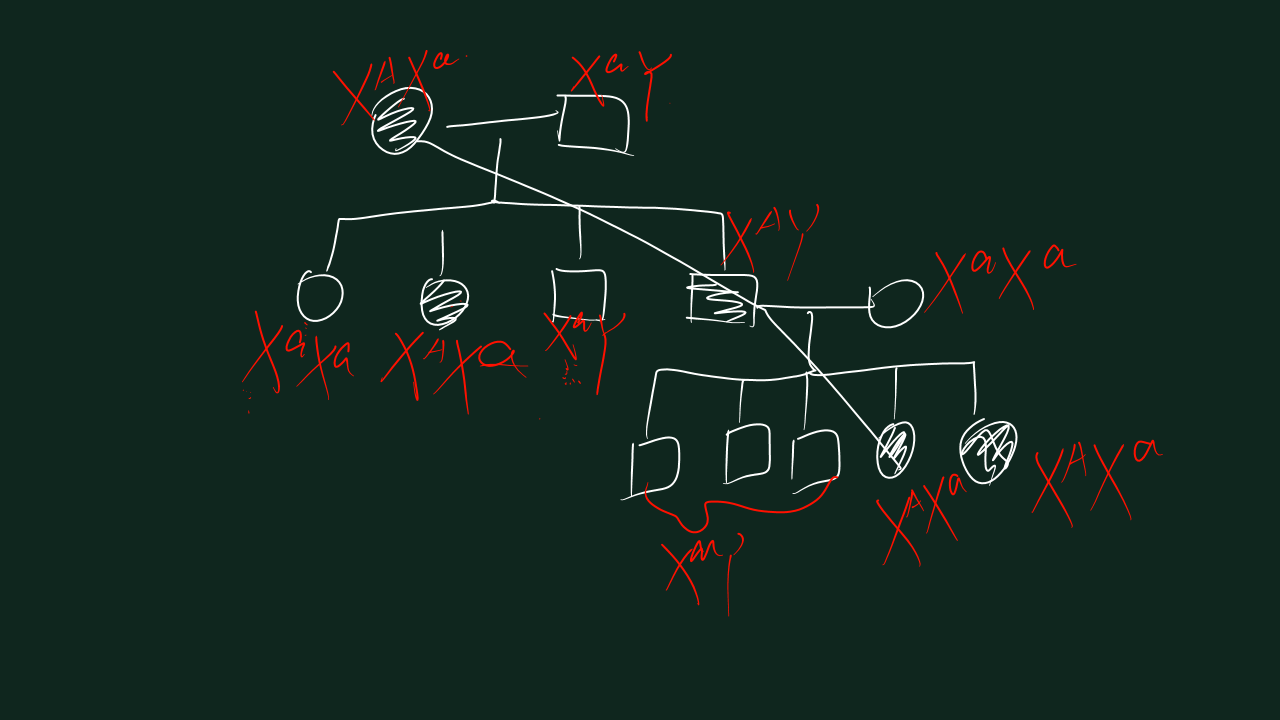 XᴬXᵃ
XᵃY
XᴬY
XᵃXᵃ
XᵃXᵃ
XᴬXᵃ
XᵃY
XᴬXᵃ
XᴬXᵃ
XᵃY